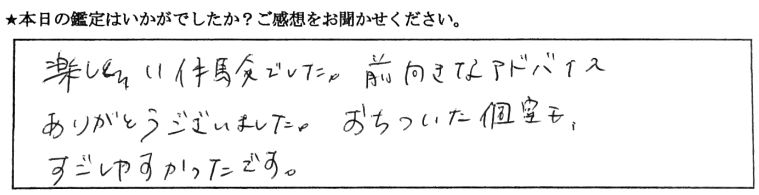 ★本日の鑑定はいかがでしたか？ご感想をお聞かせください。
楽しい体験でした。前向きなアドバイス
ありがとうございました。おちついた個室も、
すごしやすかったです。